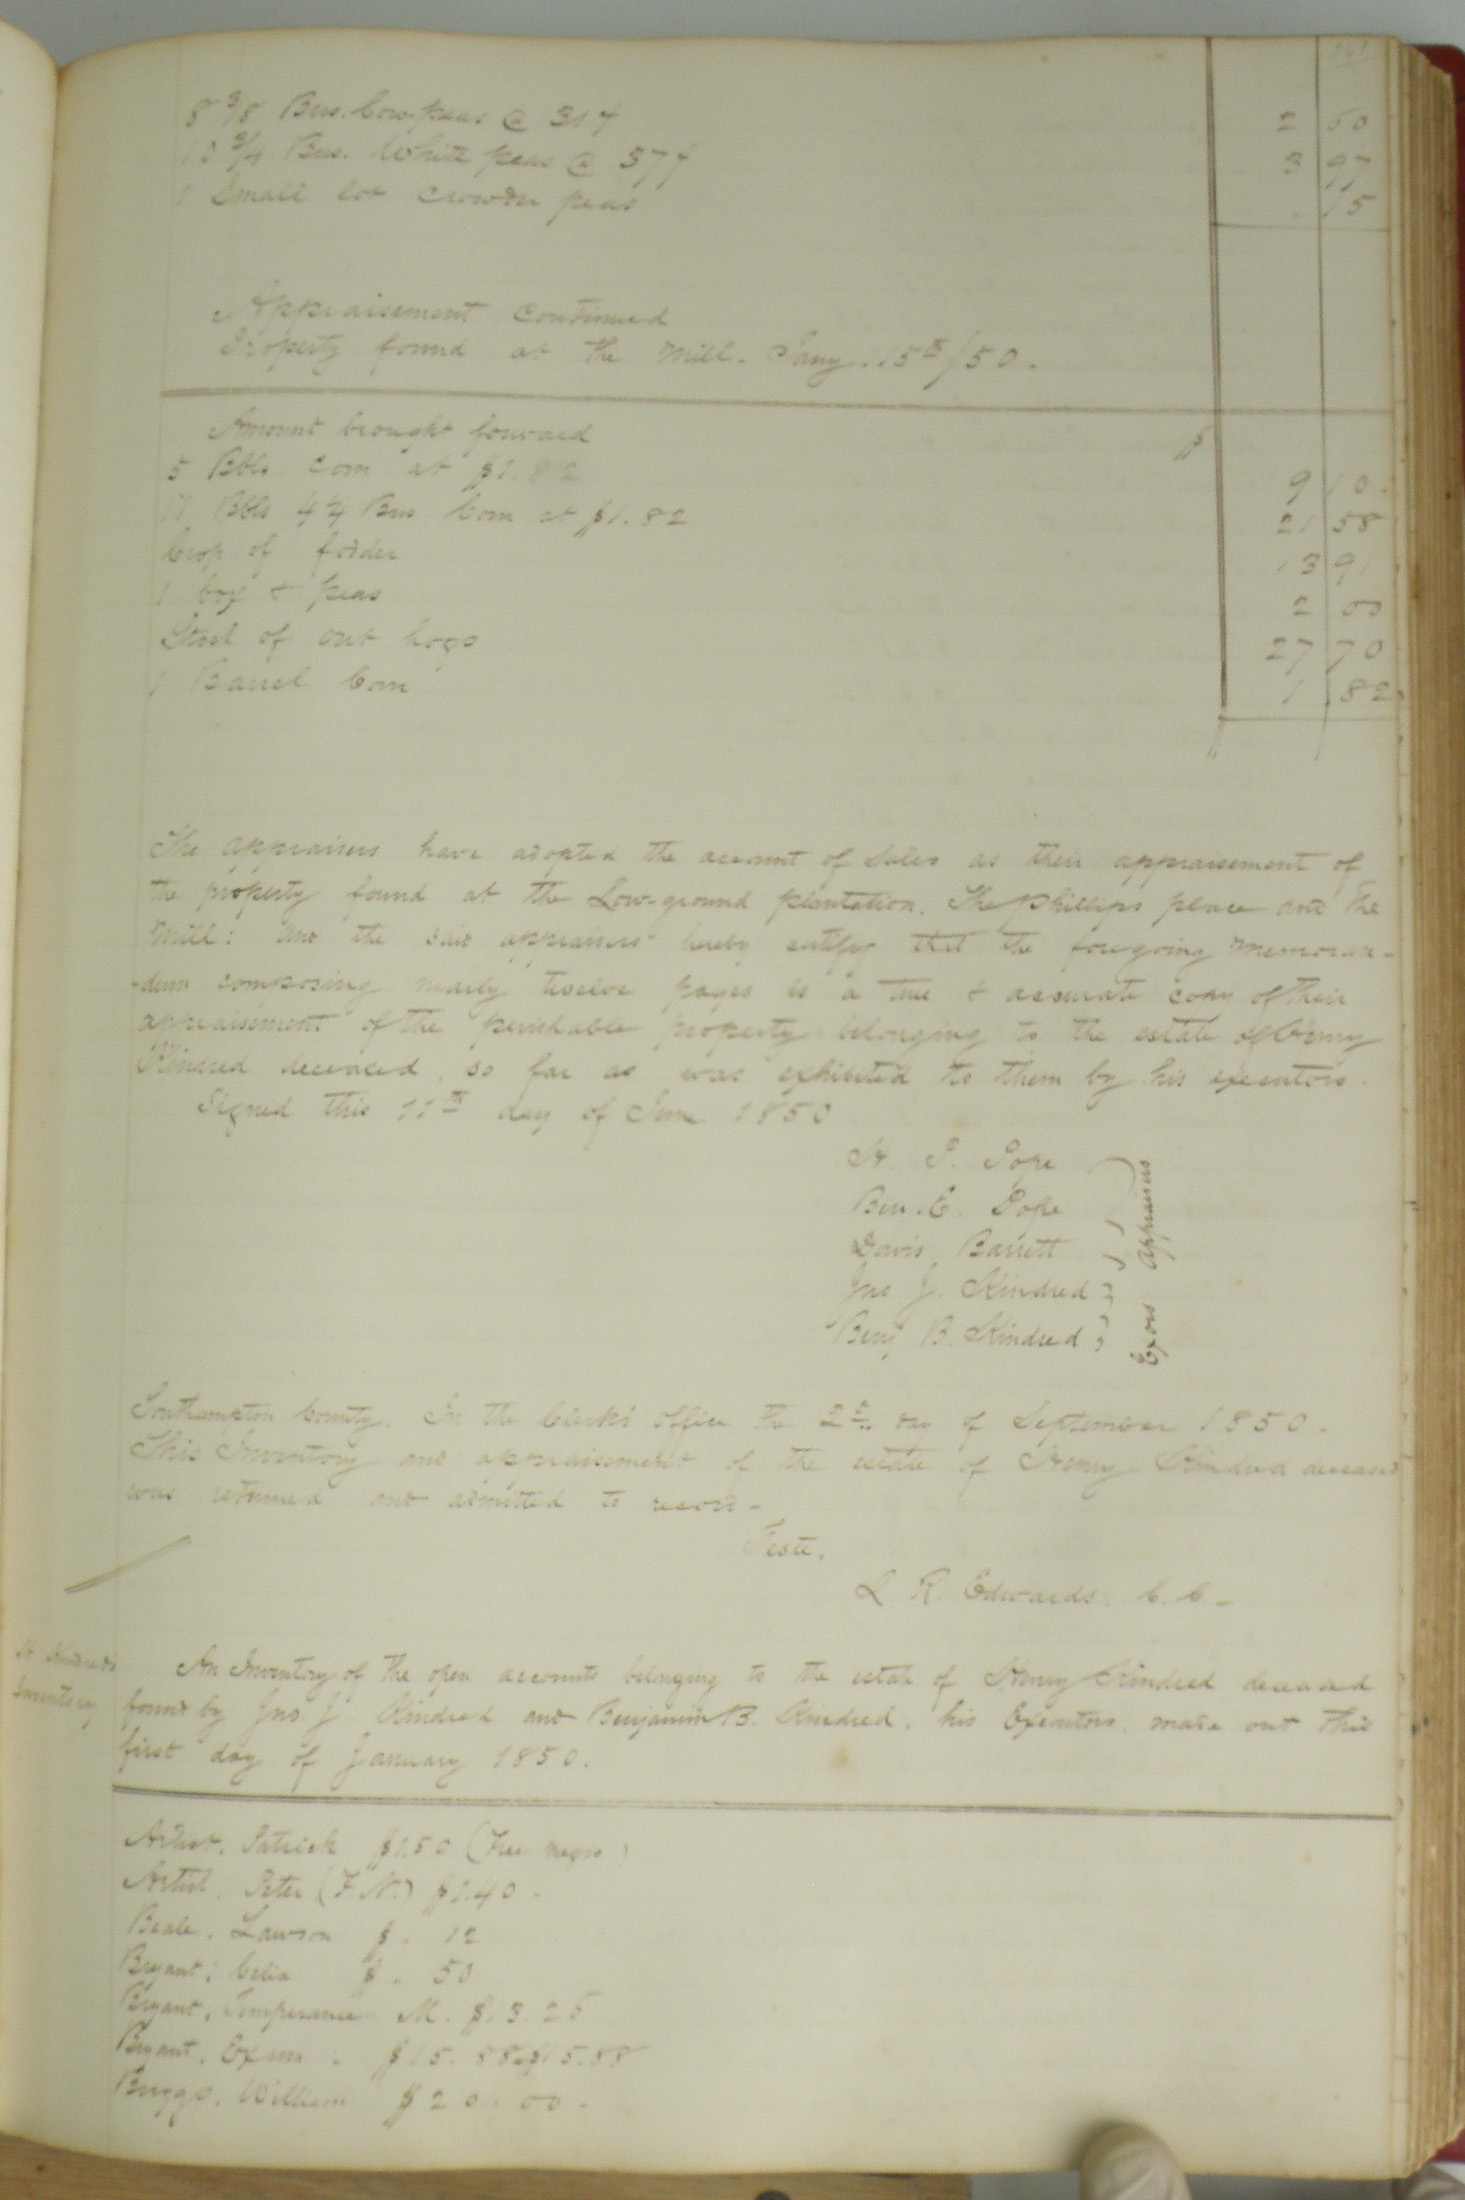 361
8 3/8 Bus. Cow peas @ 31 ¢ 2 60
10 3/4 Bus. White peas @ 37 ¢ 3 97
1 Small lot Crowder peas 15
Appraisement Continued
Property found at the Mill. Jany. 15th/50.
Amount brought forward $
5 Bbls Corn at $1.82 9 10
11 Bbls 4 1/4 Bus Corn at $1.82 21 58
Crop of fodder 13 91
1 box & peas 2 00
Stock of out hogs 27 70
1 Barrel Corn 1 82
The appraisers have adopted the account of Sales as their appraisement of
the property found at the Low-ground plantation. The Phillips place and the
Mill: And the said appraisers hereby certify that the foregoing memoran-
-dum composing nearly twelve pages is a true & accurate copy of their
appraisement of the perishable property belonging to the estate of Henry
Kindred deceased, so far as was exhibited to them by his executors.
Signed this 11th day of June 1850
H. P. Pope
Ben. E. Pope
Davis Barrett
Appraisers
Jno J. Kindred
Benj B. Kindred
Exors
Southampton County. In the Clerk's office the 2d day of September 1850.
This Inventory and appraisement of the estate of Henry Kindred deceased
was returned and admitted to record -
Teste,
L. R. Edwards. C. C -
H Kindred's
Inventory
An Inventory of the open accounts belonging to the estate of Henry Kindred deceased
found by Jno. J. Kindred and Benjamin B. Kindred, his Executors, made out this
first day of January 1850.
Artist, Patrick $1.50 (Free negro)
Artist, Peter (F. N.) $1.40 -
Beale, Lawson $ . 12
Bryant, Celia $ . 50
Bryant, Temperance M. $13.25
Bryant, Exum $15.88 $15.88
Briggs, William $20.00.